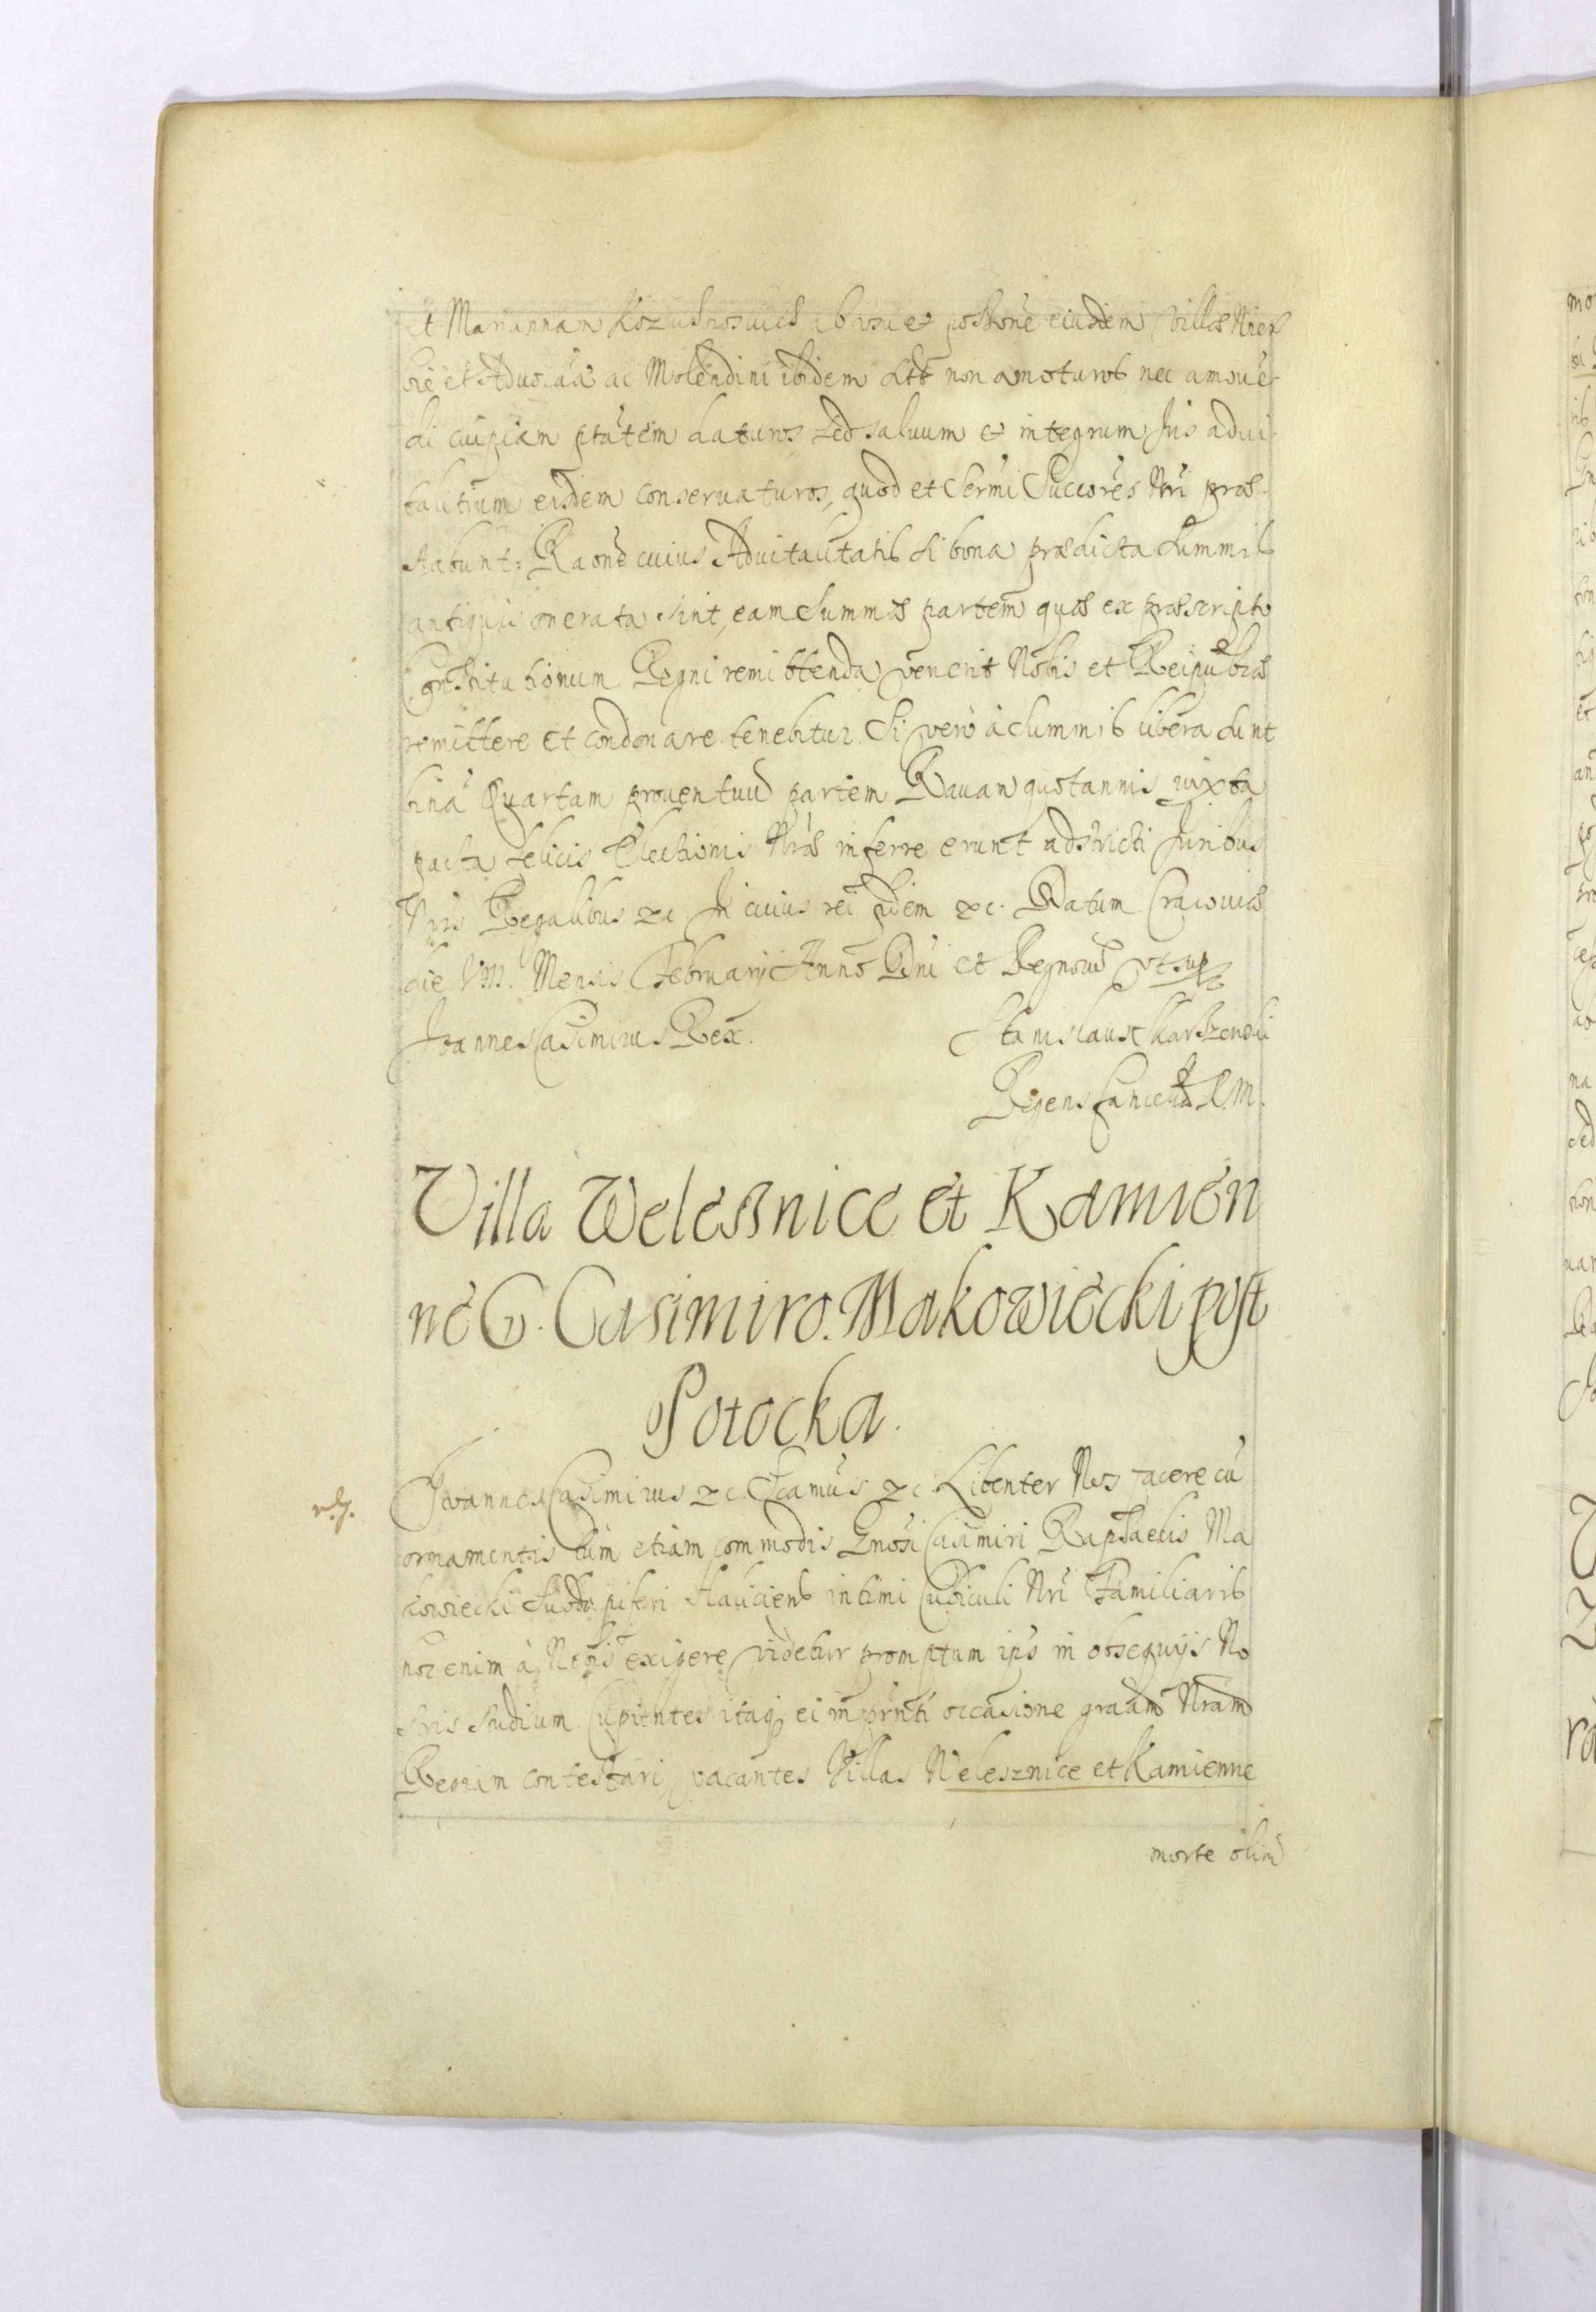 et Mariannam ab usu et possõne eiusdem Villæ
et Aduocãa ac Molendini ibidem non amoturos nec amoue
di cuipiam ptãtem daturos sed saluum et integrum Jus adui
talitium eisdem conseruaturos, quod et Sermi Succores Nri præ
stabunt. Raone cuius Aduitalitatis si bona prædicta summis
antiquis onerata sint, eam summæ partem quæ ex præscripto
Constitutionum Regni remittenda venerit Nobis et Reipubcæ
remittere et condonare tenebitur. Si vero à summis libera sunt
binã Quartam prouentuũ partem Rauam quotannis iuxta
pacta felicis Electionis Nræ inferre erunt adstricti Juribus
Nris Regalibus &c. In cuius rei fidem &c. Datum Cracouiæ
die VIII. Mensis Februarij Anno Dni et Regnorũ vt sup
Joannes Casimirus Rex.
Stanislaus Skarszewski
Regens Cancellæ R.M.
Villa Welessnice et Kamien
ne G. Casimiro. Makowiecki post
Potocka.
Joannes Casimirus &c. Scamus &c. Libenter Nos facere cũ
ornamentis tum etiam commodis Gnosi Casimiri Raphaelis Ma
kowiecki Subdapiferi Haliciens intimi Cubiculi Nri Familiaris
hoc enim à Nobis exigere videtur promptum ips in obsequijs No
stris studium. Cupientes itaq ei in prnti occasione graam Nram
Regiam contestari, vacantes Villas Welesznice et Kamienne
morte olim